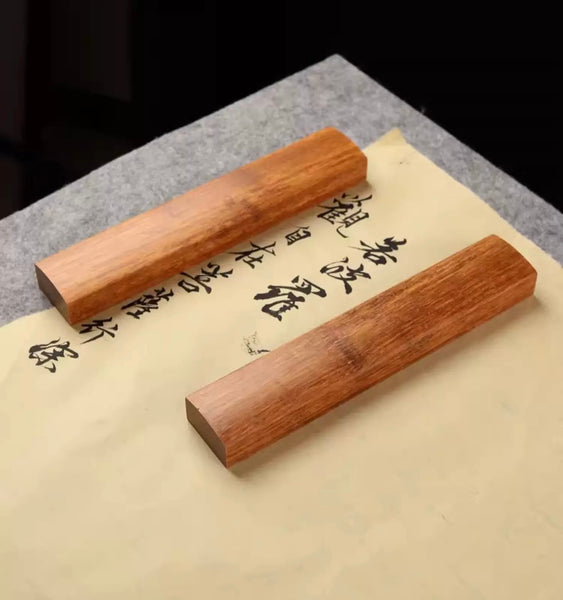 若波羅
觀自在菩薩行深